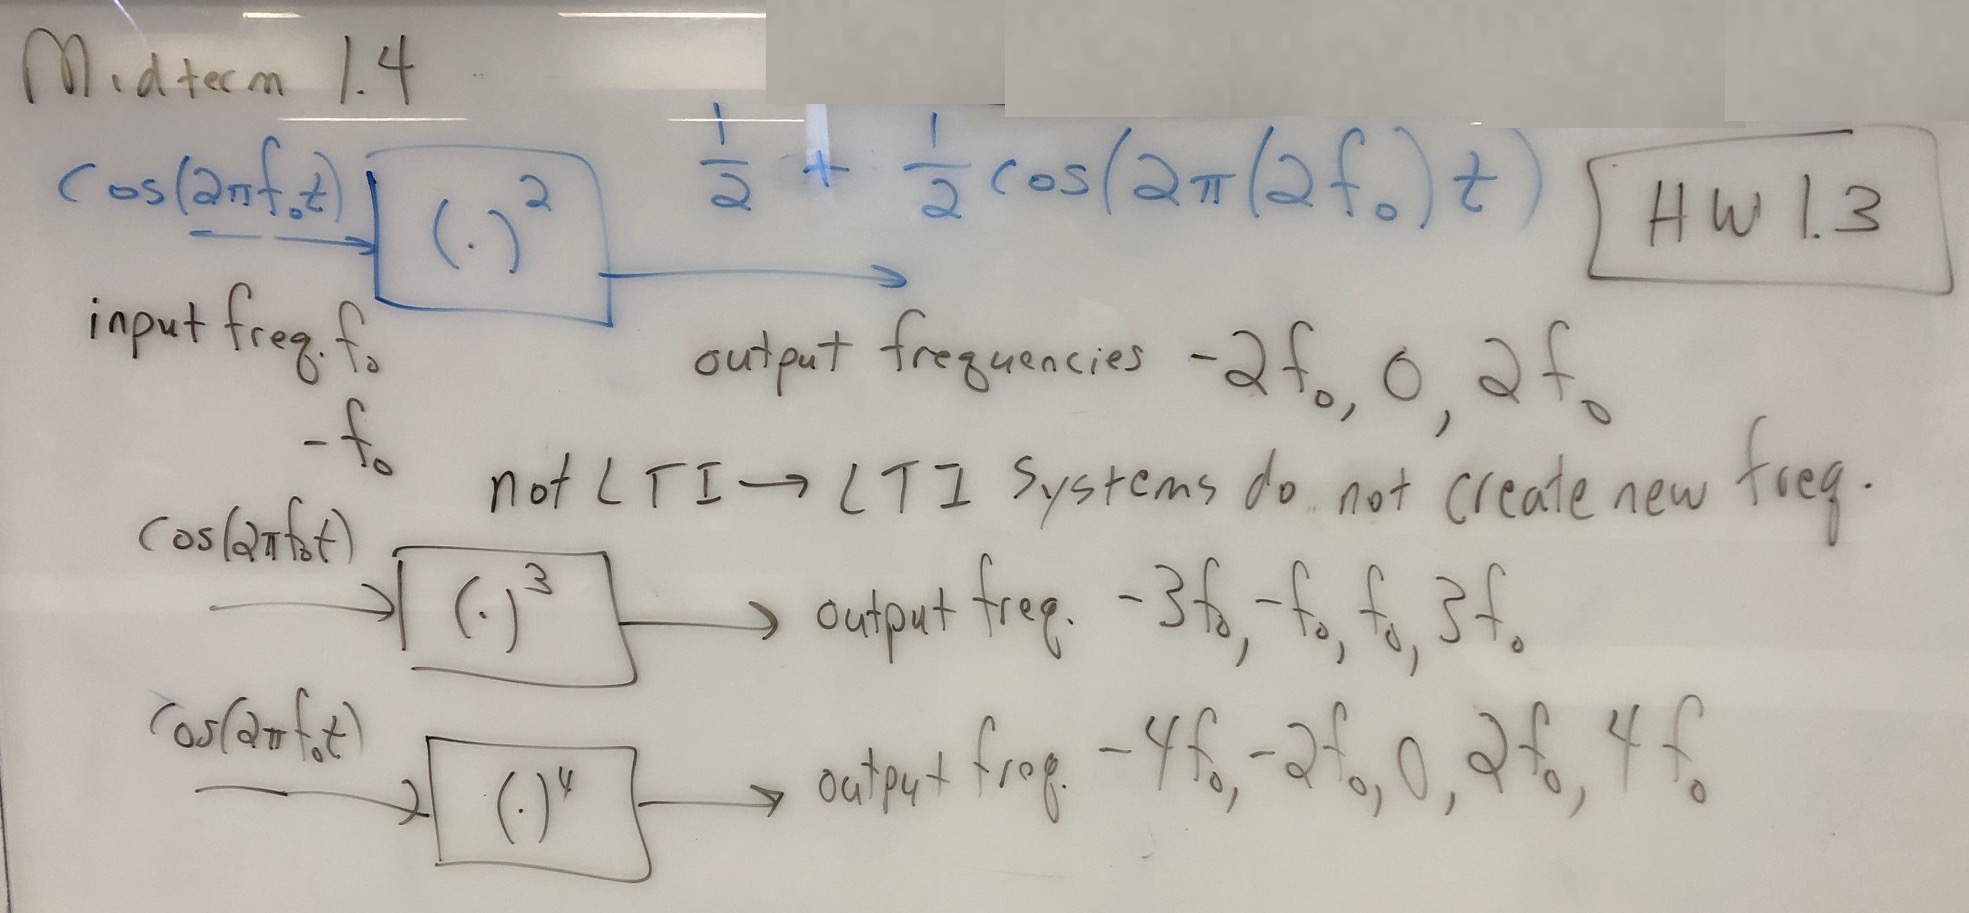 Midterm 1.4
cos(2πf₀t) (·)² 1/2 + 1/2 cos(2π(2f₀)t) HW 1.3
input freq. f₀
output frequencies -2f₀, 0, 2f₀
-f₀
not LTI → LTI Systems do not create new freq.
cos(2πf₀t)
(·)³ → output freq. -3f₀, -f₀, f₀, 3f₀
cos(2πf₀t)
(·)⁴ → output freq. -4f₀, -2f₀, 0, 2f₀, 4f₀